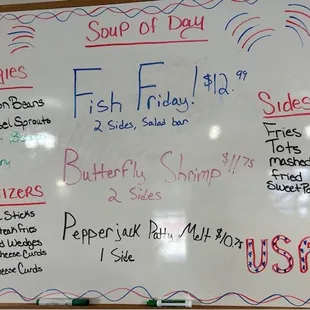 Soup of Day
Fish Friday! $12.99
2 Sides, Salad bar
Butterfly Shrimp $11.75
2 Sides
Pepperjack Patty Melt $10.75
1 Side
Beans
Sprouts
Sticks
Wedges
Cheese Curds
Cheese Curds
Sides
Fries
Tots
mashed
fried
Sweet
USA